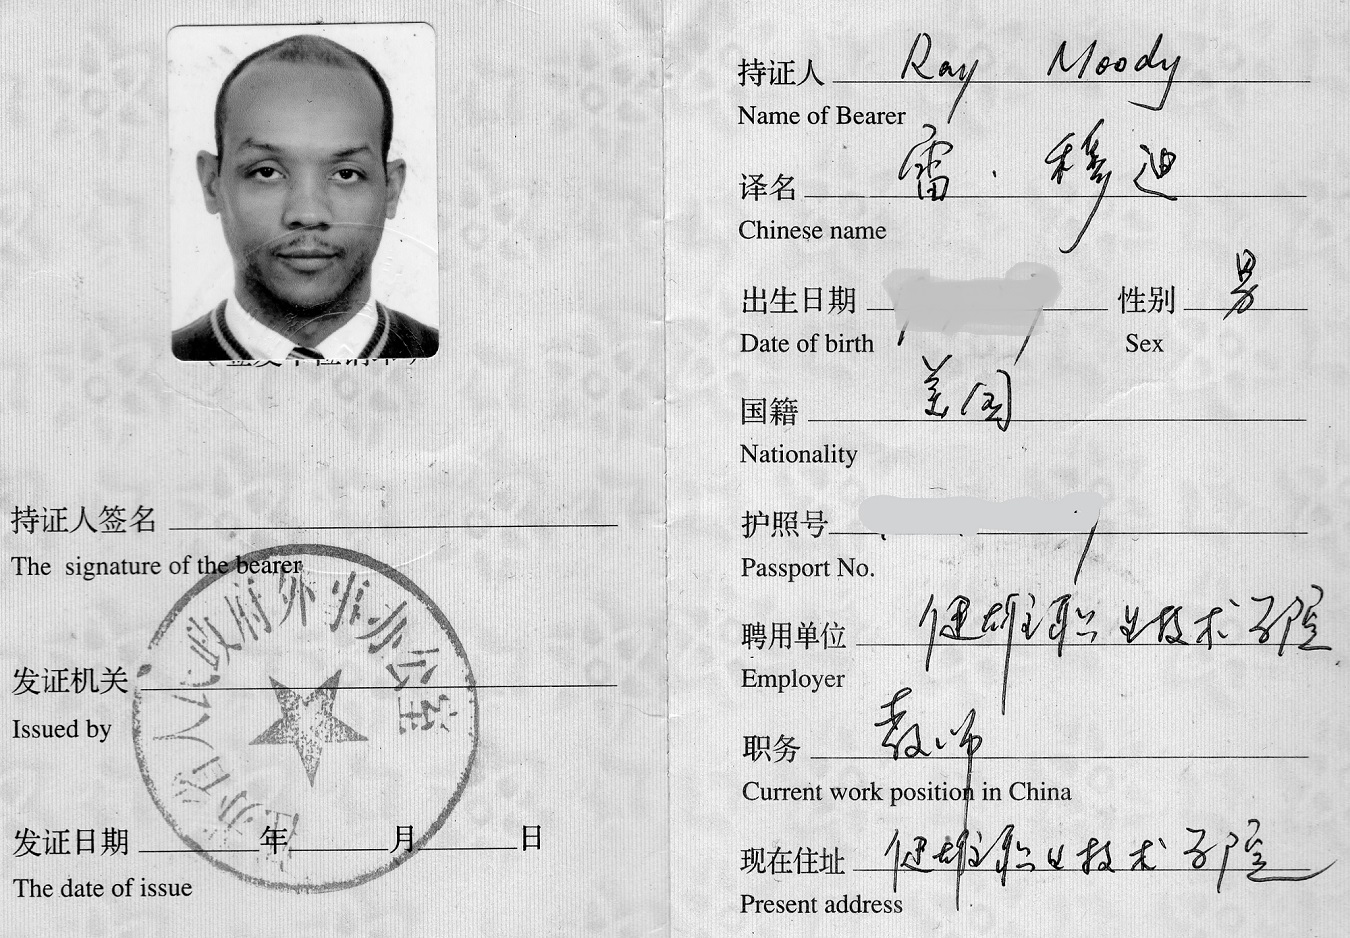 （签发单位钢印）
持证人签名
The signature of the bearer
江苏省人民政府外事办公室
发证机关
Issued by
发证日期 年 月 日
The date of issue
持证人 Ray Moody
Name of Bearer
译名 雷·穆迪
Chinese name
出生日期 性别 男
Date of birth Sex
国籍 美国
Nationality
护照号
Passport No.
聘用单位 健雄职业技术学院
Employer
职务 教师
Current work position in China
现在住址 健雄职业技术学院
Present address